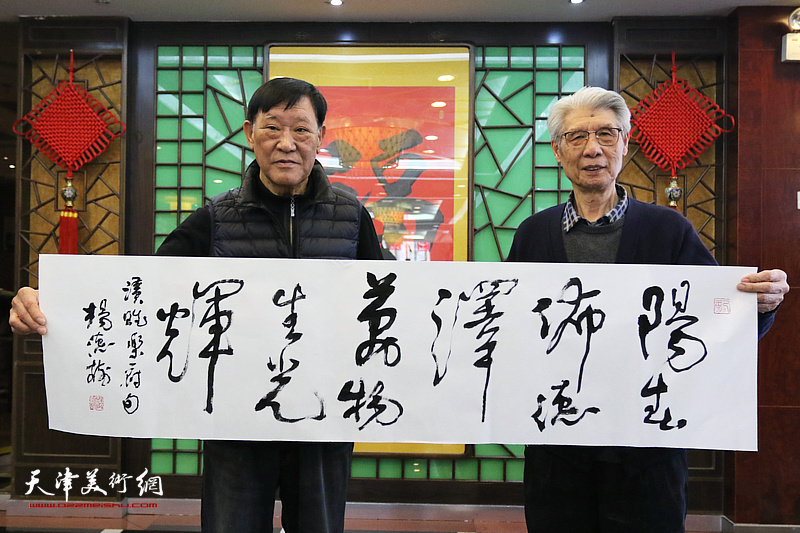 陽春
佈德
澤
萬物
生光
輝
漢魏樂府句
天津美術網
www.022meishu.com